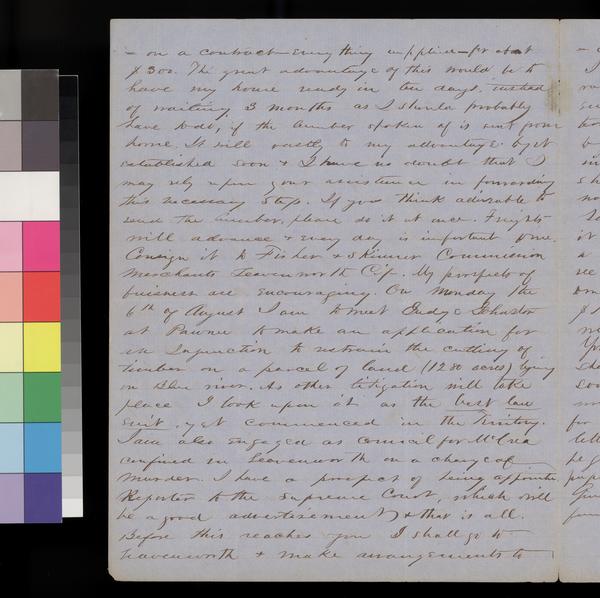 - on a contract - Every thing supplied - for about
$300. The great advantage of this would be to
have my house ready in ten days, instead
of waiting 3 months as I should probably
have to do, if the lumber spoken of is sent from
home. It will vastly to my advantage to get
established soon & I have no doubt that I
may rely upon your assistance in forwarding
this necessary step. If you think advisable to
send the lumber, please do it at once. Freights
will advance & every day is important to me.
Consign it to Fisher & Skinner Commission
Merchants Leavenworth City. My prospects of
business are encouraging. On Monday the
6th of August I am to meet Judge Johnston
at Pawnee to make an application for
an Injunction to restrain the cutting of
timber on a parcel of land (1280 acres) lying
on Blue river. As other litigation will take
place I look upon it as the best law
suit, yet commenced in the Territory.
I am also engaged as council for McCrea
confined in Leavenworth on a charge of
murder. I have a prospect of being appointed
Reporter to the Supreme Court, which will
be a good advertisement & that is all.
Before this reaches you I shall go to
Leavenworth & make arrangements to